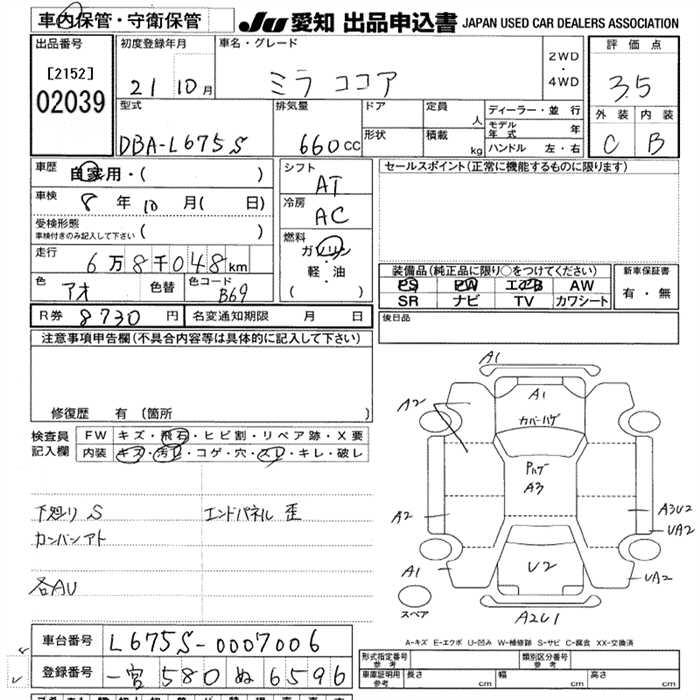 車内保管・守衛保管
JU 愛知 出品申込書 JAPAN USED CAR DEALERS ASSOCIATION
出品番号
[2152]
02039
初度登録年月
21 10月
車名・グレード
ミラ ココア
2WD
・
4WD
評価点
3.5
外装 内装
C B
型式
DBA-L675S
排気量
660cc
ドア
形状
定員
人
積載
kg
ディーラー・並行
モデル年式 年
ハンドル 左・右
車歴
自家用・( )
車検
8年10月( 日)
受検形態
車検付きのみ記入して下さい ( )
走行
6万8千048km
色
アオ
色替
色コード
B69
シフト
AT
冷房
AC
燃料
ガソリン
・
軽・油
( )
セールスポイント(正常に機能するものに限ります)
装備品(純正品に限り○をつけてください)
PS PW エアB AW
SR ナビ TV カワシート
新車保証書
有・無
後日品
R券 8730円
名変通知期限 月 日
注意事項申告欄(不具合内容等は具体的に記入して下さい)
修復歴 有(箇所 )
検査員記入欄
FW キズ・飛石・ヒビ割・リペア跡・X要
内装 キズ・汚レ・コゲ・穴・スレ・キレ・破レ
下廻りS
エンドパネル 歪
カンバンアト
各AU
A1
A2
A1
カバーハゲ
Pハゲ
A3
A2
A3U2
UA2
A1
U2
UA2
スペア
A2U1
A-キズ E-エクボ U-凹み W-補修跡 S-サビ C-腐食 XX-交換済
車台番号 L675S-0007006
登録番号 一宮 580 ぬ 6596
形式指定番号
参考
類別区分番号
参考
車庫証明用
参考
長さ cm
幅 cm
高さ cm